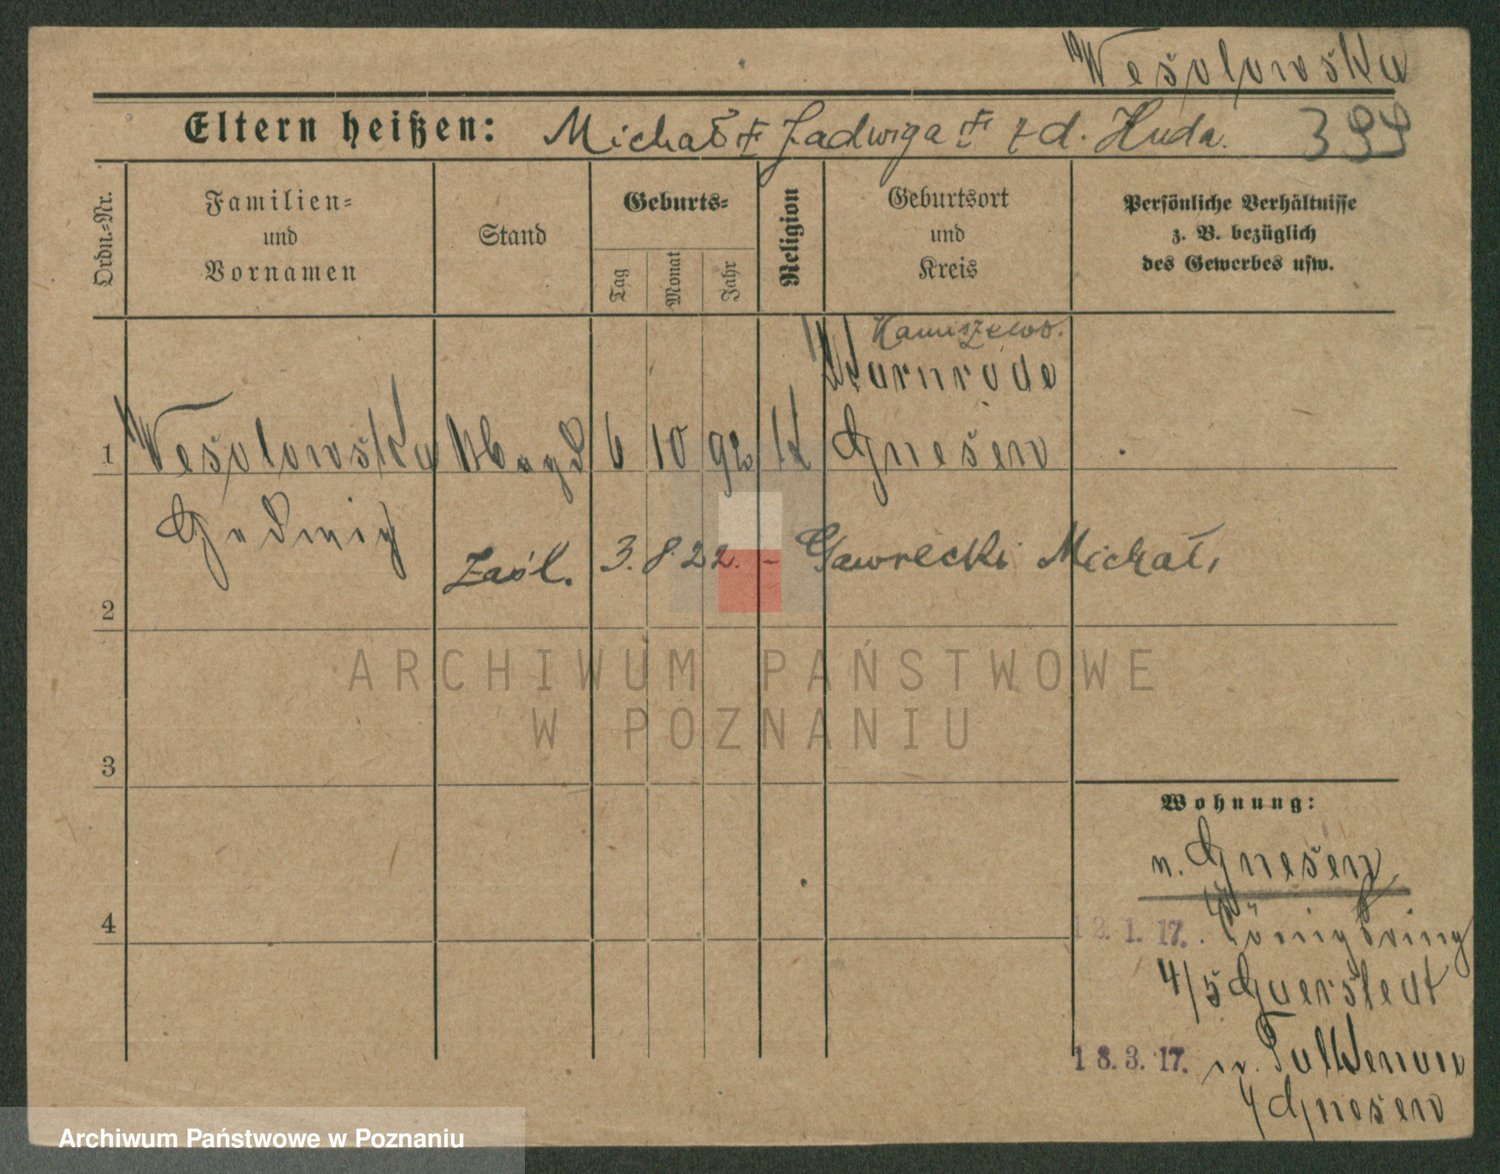 Wesolowska
Eltern heißen: Michał † Jadwiga † zd. Huda. 399
Ordn.-Nr.
Familien-
und
Vornamen
Stand
Geburts-
Tag
Monat
Jahr
Religion
Geburtsort
und
Kreis
Persönliche Verhältnisse
z. B. bezüglich
des Gewerbes usw.
1
Wesolowska
Hedwig
Magd
6 10 92
K
Gnesen
Zaśl. 3.8.22. - Gawrecki Michał,
2
3
4
ARCHIWUM PAŃSTWOWE
W POZNANIU
Wohnung:
n. Gnesen
12. 1. 17.
4/5
18. 3. 17. n.
Gnesen
Archiwum Państwowe w Poznaniu